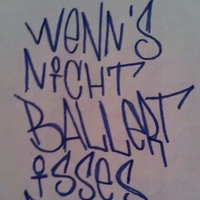 WENN'S
NiCHT
BALLERT
iSSES